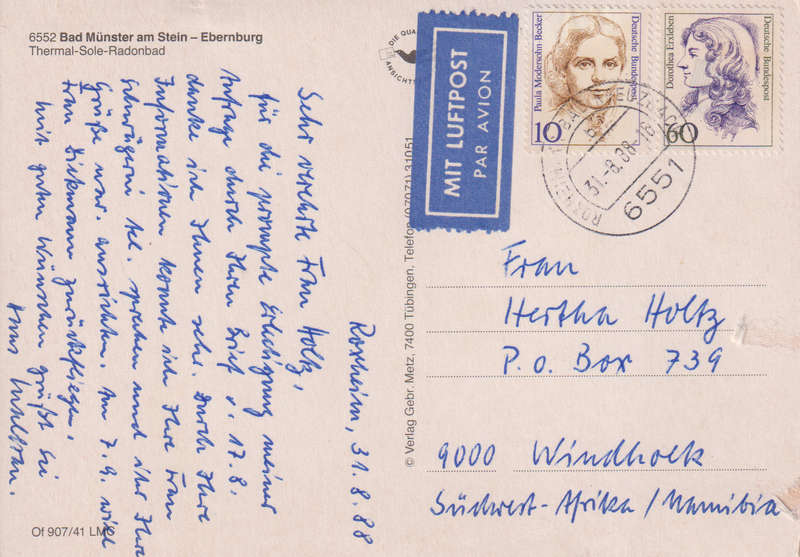 6552 Bad Münster am Stein – Ebernburg
Thermal-Sole-Radonbad
DIE QUA
ANSICHT
MIT LUFTPOST
PAR AVION
Paula Modersohn-Becker
Deutsche Bundespost
10
Dorothea Erxleben
Deutsche Bundespost
60
31.-8.88-16
6551
Roxheim, 31.8.88
Sehr verehrte Frau Holtz,
für die prompte Erledigung meiner
Anfrage durch Ihren Brief v. 17.8.
danke ich Ihnen sehr. Durch Ihre
Informationen konnte ich Ihre Frau
Schwägerin tel. sprechen und ihr Ihre
Grüße ausrichten. Am 7.9. will
Frau Diekmann zurückfliegen.
Mit guten Wünschen grüßt Sie
© Verlag Gebr. Metz, 7400 Tübingen, Telefon (07071) 31051
Frau
Hertha Holtz
P.o. Box 739
9000 Windhoek
Südwest-Afrika/Namibia
Of 907/41 LMG